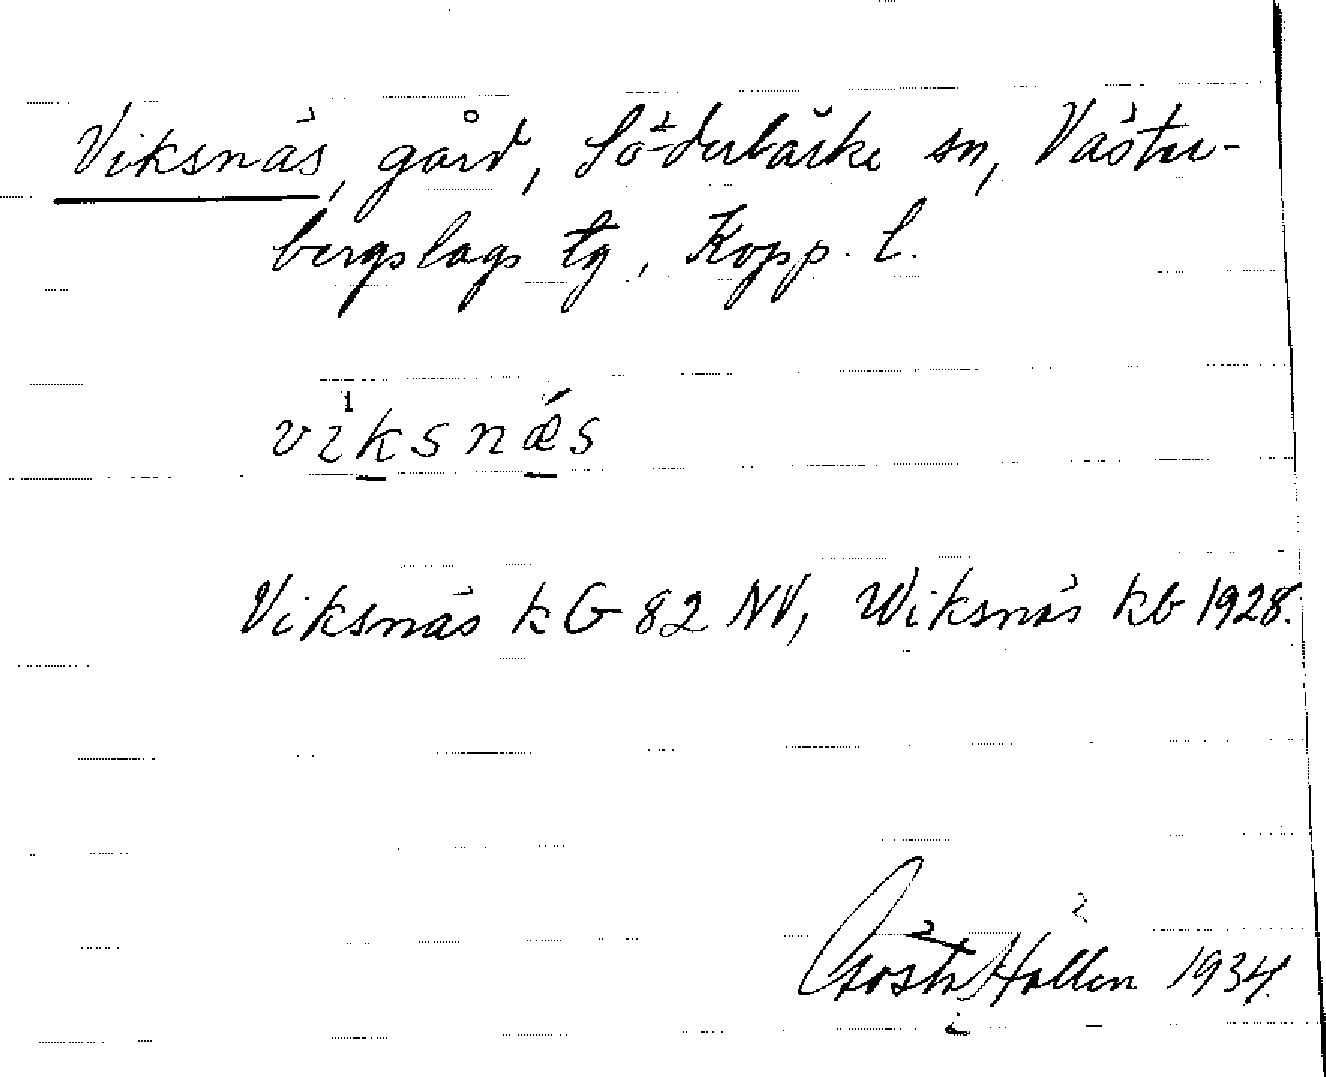 Viksnäs, gård, Söderbärke sn, Väster-
bergslags tg, Kopp. l.
viksnæs
Viksnäs kG 82 NV, Wiksnäs kb 1928.
Gösta Hallén 1934.